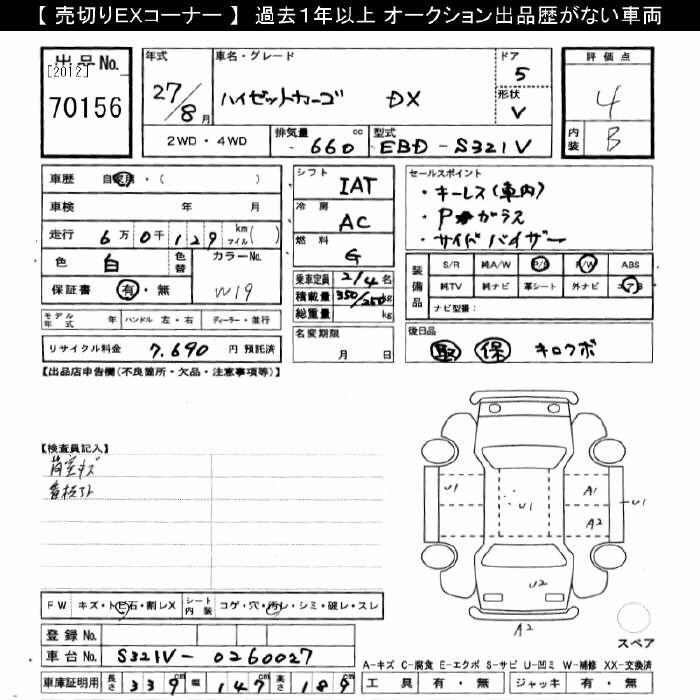 【 売切りEXコーナー 】 過去1年以上 オークション出品歴がない車両
出品No.
[2012]
70156
年式
27/8月
車名・グレード
ハイゼットカーゴ DX
ドア
5
形状
V
2WD・4WD
排気量
660 cc
型式
EBD-S321V
評価点
4
内装
B
車歴
・( )
車検 年 月
走行 6万0千129 km マイル( )
色 白
色替
カラーNo.
W19
保証書 有・無
シフト
IAT
冷房
AC
燃料
G
乗車定員 2/4名
積載量 350/250kg
総重量 kg
セールスポイント
・キーレス(車内)
・Pガラス
・サイドバイザー
装備品
S/R 純A/W P/S P/W ABS
純TV 純ナビ 革シート 外ナビ
ナビ型番:
モデル年式 年 ハンドル 左・右 ディーラー・並行
リサイクル料金 7.690 円 預託済
名変期限
月 日
後日品
取 保 キロクボ
【出品店申告欄(不良箇所・欠品・注意事項等)】
【検査員記入】
荷室キズ
看板アト
U1
U1
A1
A2
U1
U2
A2
スペア
FW キズ・トビ石・割レX シート内装 コゲ・穴・汚レ・シミ・破レ・スレ
登録No.
車台No. S321V-0260027
車庫証明用 長さ 339cm 幅 147cm 高さ 189cm
A-キズ C-腐食 E-エクボ S-サビ U-凹ミ W-補修 XX-交換済
工具 有・無 ジャッキ 有・無